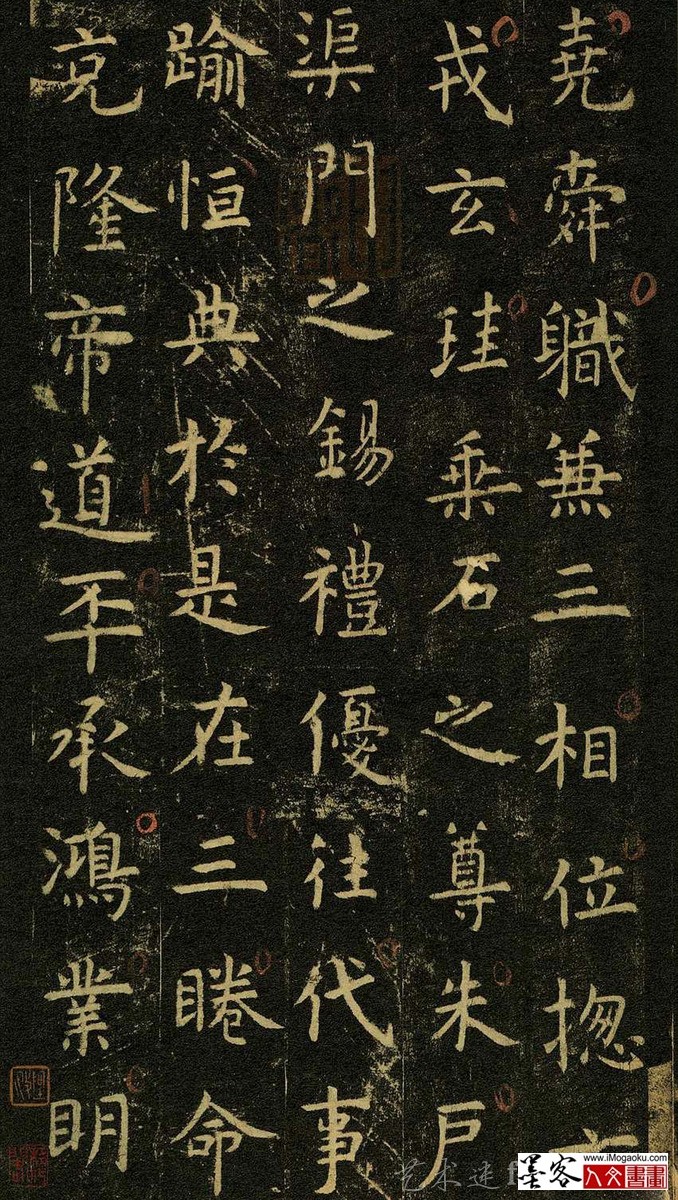 堯舜職兼三相位揔
戎玄珪乘石之尊朱戶
渠門之錫禮優往代事
踰恒典於是在三睠命
克隆帝道丕承鴻業明
艺术迷
墨客
www.iMogaoku.com
人文書畫